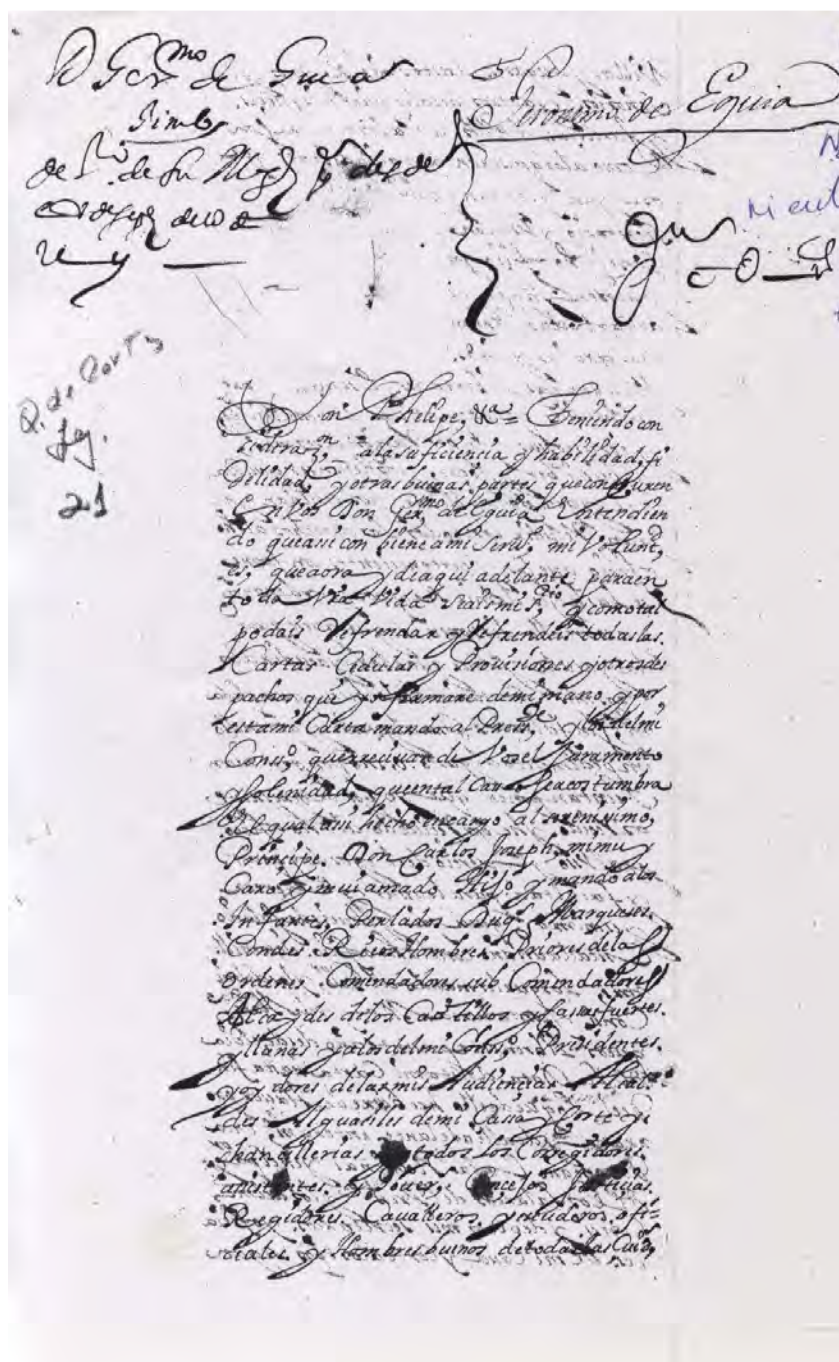 D Ger.mo de Guia
de su Mag.d y desde
Geronimo de Eguia
Q. de Cort.s
Leg.
21
Don Phelipe, &a = Teniendo con
siderazon ala suficiencia y habilidad, fi
delidad, y otras buinas partes que concurren
En Vos Don Ger.mo de Eguia Entendien
do que asi con biene ami seru.o, mi Volunt,
es, que aora y di aqui adelante para en
toda Vra Vida seais mi s.rio y como tal
podais Refrendar y Refrendeis todas las
Cartas Cedulas y Provisiones y otros des
pachos que yo firmare de mi mano y por
esta mi Carta mando al Pres.te y los del mi
Cons.o que recivan de Vos el Juramento
y solenidad, que en tal Caso se acostumbra
el qual asi hecho encargo al serenisimo,
Principe Don Carlos Joseph, mi mui
Caro y mui amado Hijo y mando alos
Infantes, Perlados Duq.s Marqueses
Condes Ricos Hombres Priores de las
ordenes Comendadores sub Comendadores
Alcaydes delos Castillos y Cassas fuertes
y llanas y alos del mi Conss.o Presidentes
y oydores de las mis Audiencias Alcal
des Alguaciles de mi Cassa y Corte y
chancillerias y todos los Corregidores
asistentes y Gover.s Concejos Justicias
Regidores Cavalleros escuderos ofi=
ciales y Hombres buenos de todas las Ciud,